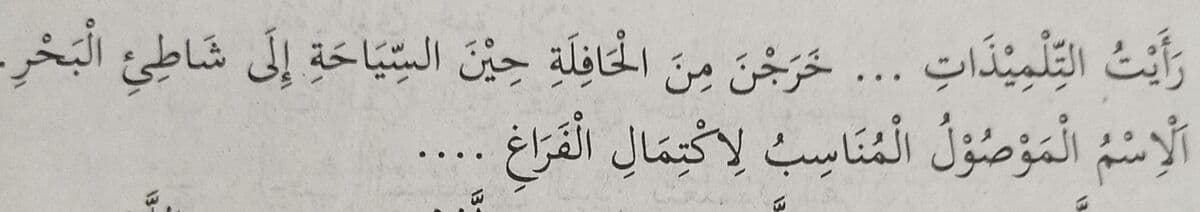 رَأَيْتُ التِّلْمِيْذَاتِ ... خَرَجْنَ مِنَ الْحَافِلَةِ حِيْنَ السِّيَاحَةِ إِلَى شَاطِئِ الْبَحْرِ.
اَلْاِسْمُ الْمَوْصُوْلُ الْمُنَاسِبُ لِاكْتِمَالِ الْفَرَاغِ ....